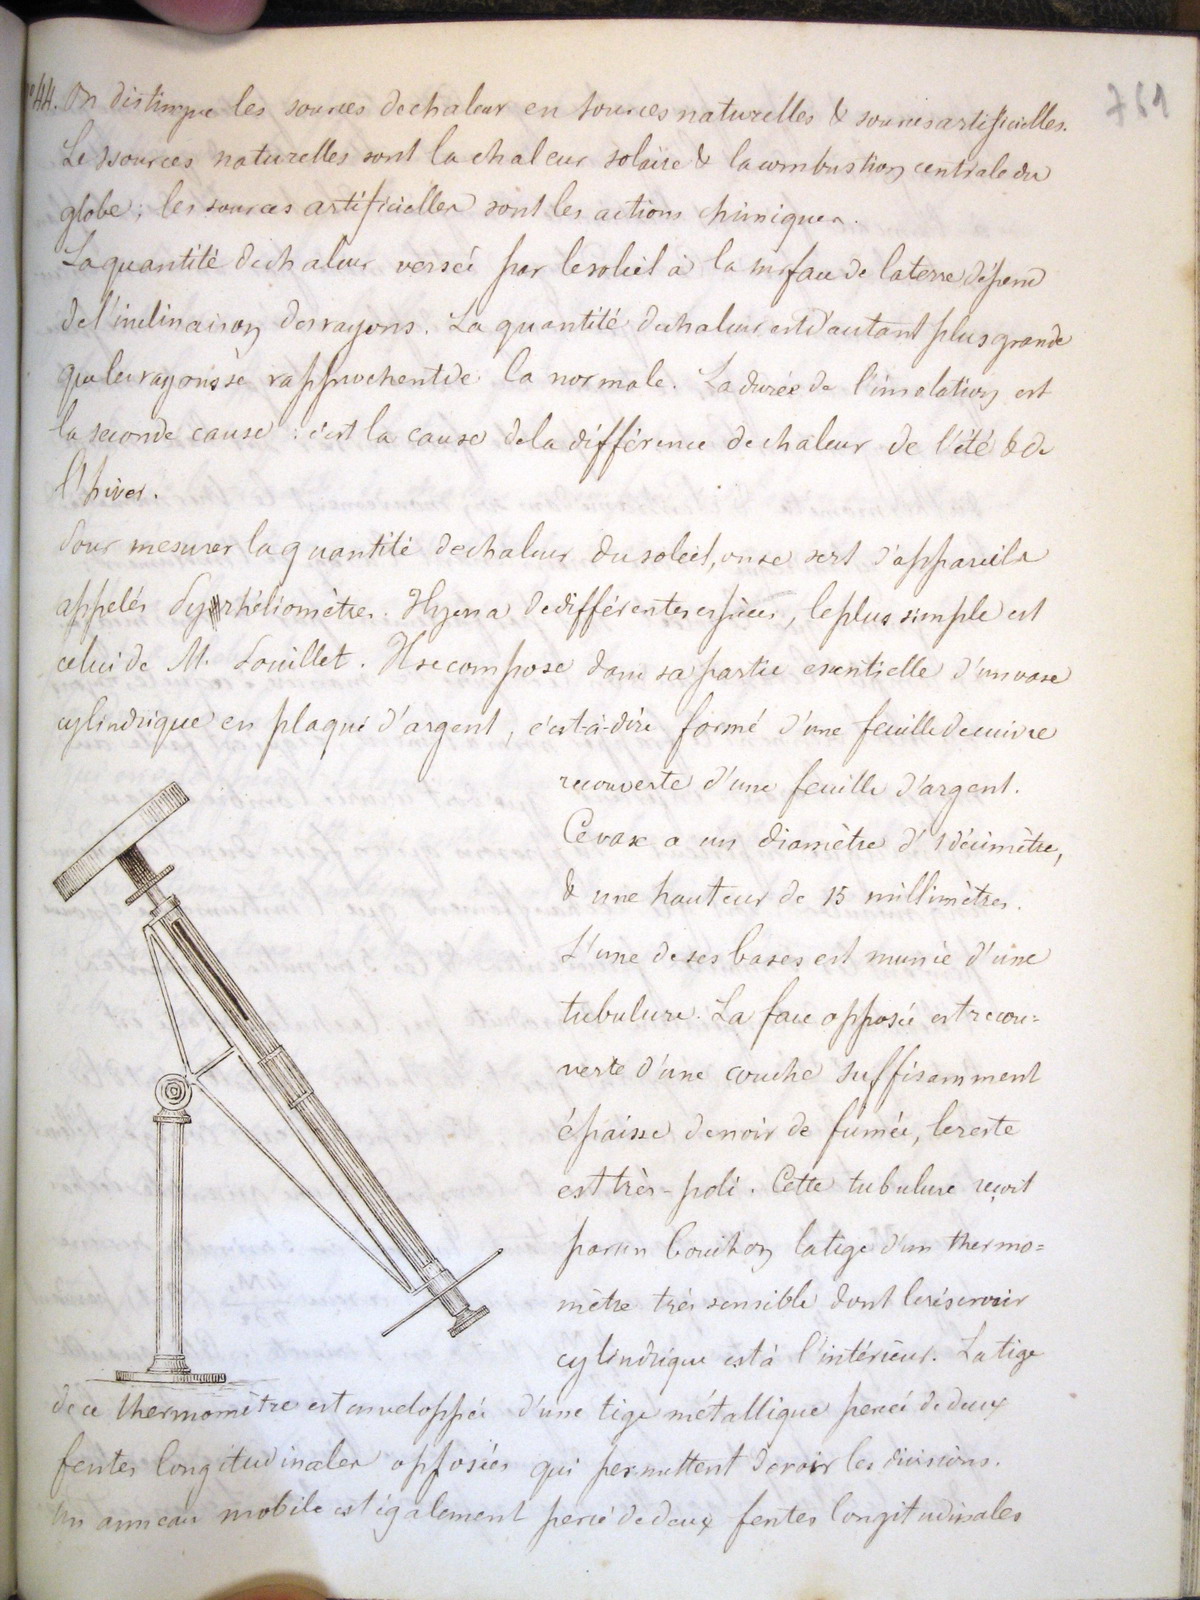 761
N°44. On distingue les sources de chaleur en sources naturelles & sources artificielles.
Les sources naturelles sont la chaleur solaire & la combustion centrale du
globe ; les sources artificielles sont les actions chimiques.
La quantité de chaleur versée par le soleil à la surface de la terre dépend
de l'inclinaison des rayons. La quantité de chaleur est d'autant plus grande
que les rayons se rapprochent de la normale. La durée de l'insolation est
la seconde cause : c'est la cause de la différence de chaleur de l'été & de
l'hiver.
Pour mesurer la quantité de chaleur du soleil, on se sert d'appareils
appelés Pyrhéliomètres. Il y en a de différentes espèces, le plus simple est
celui de M. Pouillet. Il se compose dans sa partie essentielle d'un vase
cylindrique en plaqué d'argent, c'est-à-dire formé d'une feuille de cuivre
recouverte d'une feuille d'argent.
Ce vase a un diamètre d'1 décimètre,
& une hauteur de 15 millimètres.
L'une de ses bases est munie d'une
tubulure. La face opposée est recou=
verte d'une couche suffisamment
épaisse de noir de fumée, le reste
est très-poli. Cette tubulure reçoit
par un bouchon la tige d'un thermo=
mètre très sensible dont le réservoir
cylindrique est à l'intérieur. La tige
de ce thermomètre est enveloppée d'une tige métallique percée de deux
fentes longitudinales opposées qui permettent de voir les divisions.
Un anneau mobile est également percé de deux fentes longitudinales